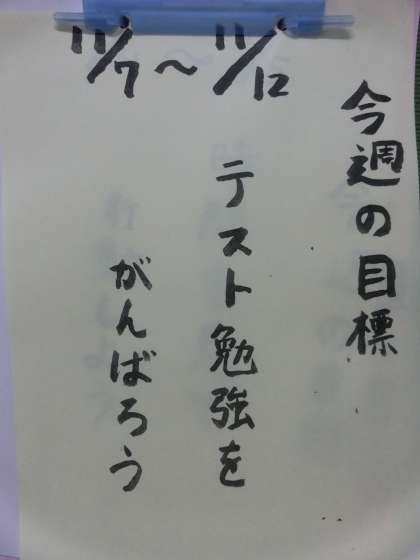 11/7〜11/12
今週の目標
テスト勉強を
がんばろう